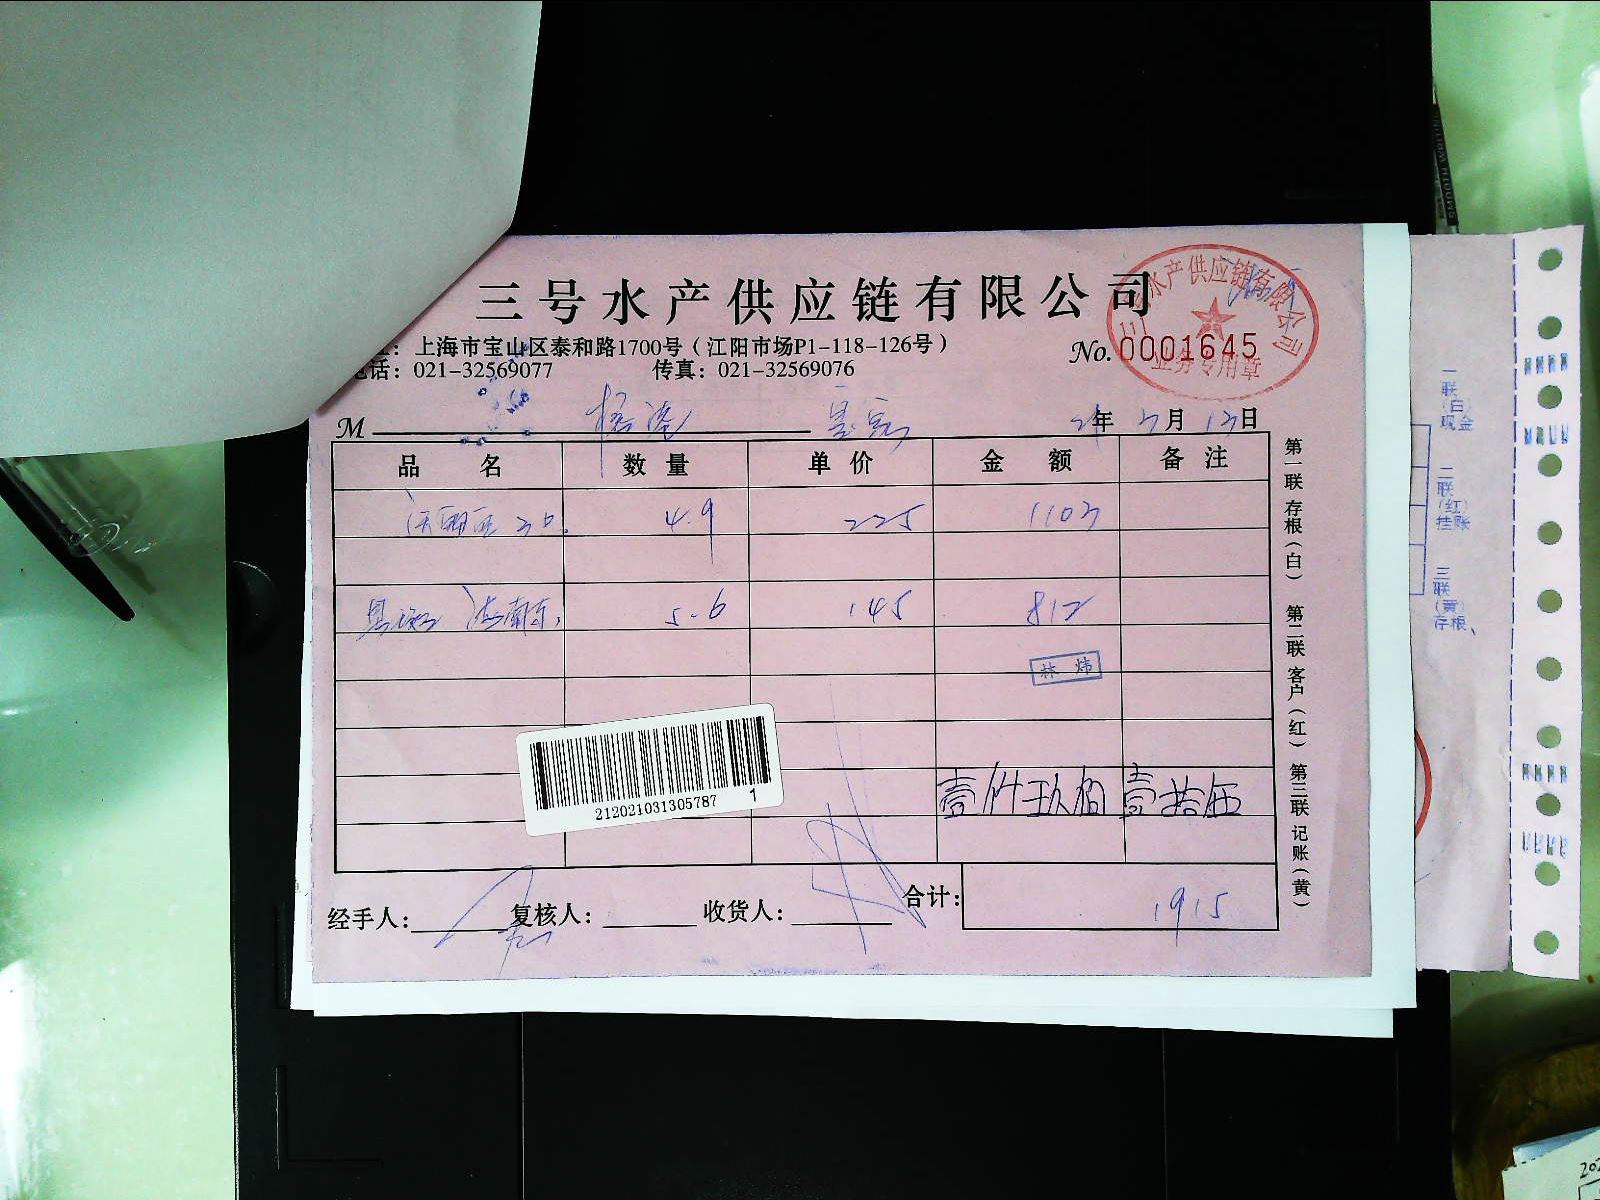 三号水产供应链有限公司
：上海市宝山区泰和路1700号（江阳市场P1-118-126号）
电话：021-32569077 传真：021-32569076
No.0001645
水产供应链有限公司
业务专用章
M 21年 3月 13日
品名 数量 单价 金额 备注
4.9 225 1103
5.6 145 812
林炜
212021031305787 1
壹仟玖佰壹拾伍
经手人： 复核人： 收货人： 合计：1915
第一联 存根（白） 第二联 客户（红） 第三联 记账（黄）
一联（白）现金
二联（红）挂账
三联（黄）存根
SMOOTH WRITING
202